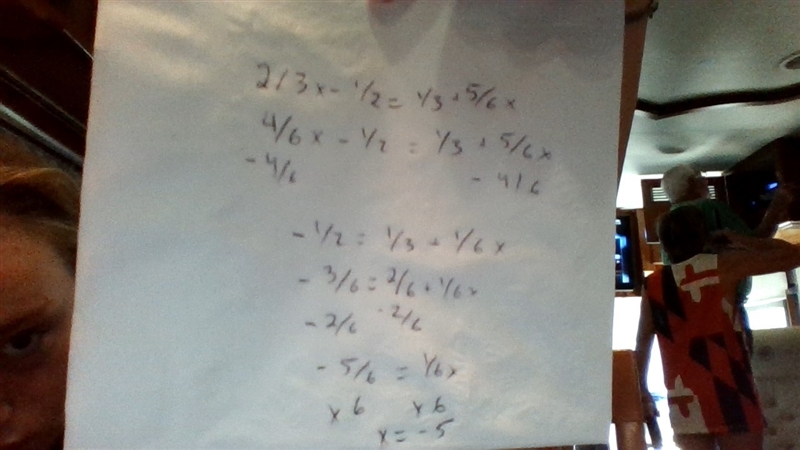 2/3x - 1/2 = 1/3 + 5/6x
4/6x - 1/2 = 1/3 + 5/6x
- 4/6 - 4/6
- 1/2 = 1/3 + 1/6x
- 3/6 = 2/6 + 1/6x
- 2/6 - 2/6
- 5/6 = 1/6x
x 6 x 6
x = -5